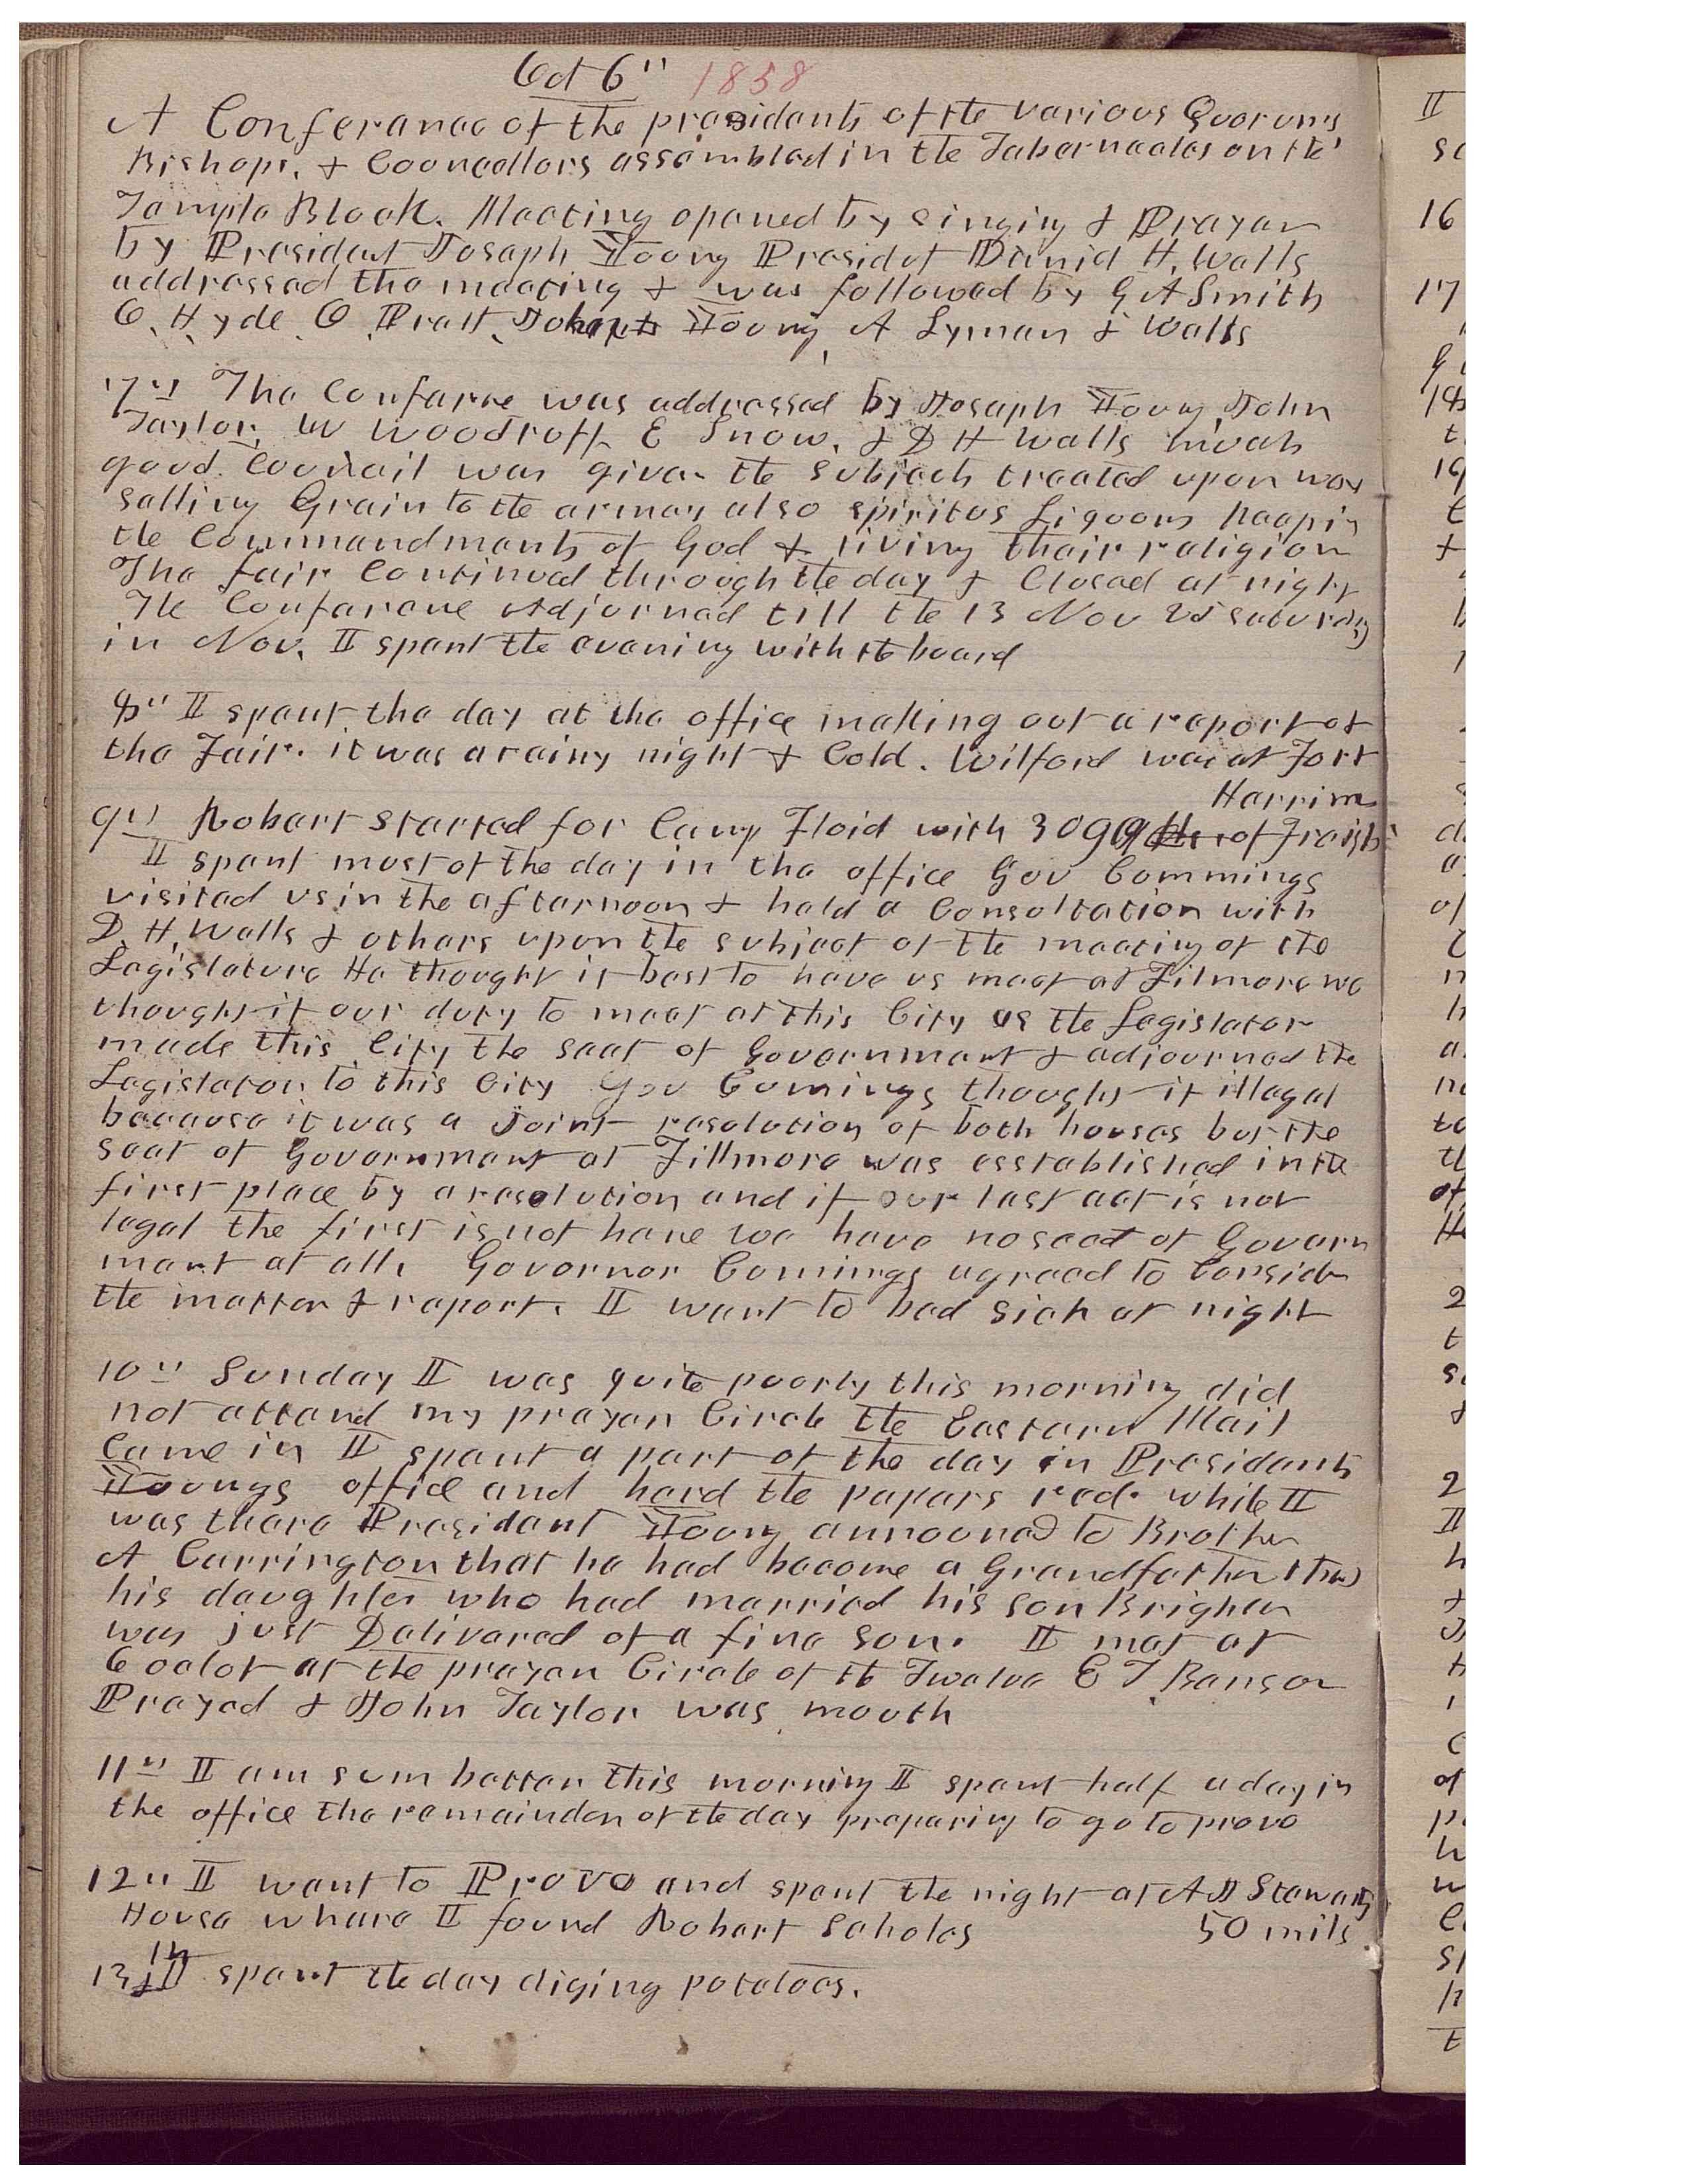 Oct 6" 1858
A Conferance of the presidents of the various Quorums
Bishops, & Councellors assembled in the Tabernacles on the
Temple Block. Meeting opened by singing & Prayer
by President Joseph Young Presidet Daniel H. Wells
addressed the meeting & was followed by G A Smith
O. Hyde O Pratt, Young A Lyman & Wells
7" The Conferne was addressed by Joseph Young, John
Taylor, W Woodruff E Snow, & D H Wells much
good Council was given the subjects treated upon was
selling Grain to the armey also spiritus Liquors keeping
the Commandments of God & living their religion
The fair Continued through the day & Closed at night
The Conferance Adjorned till the 13 Nov 2d saturday
in Nov. I spent the evening with the board
8" I spent the day at the office making out a report of
the Fair. it was a rainy night & Cold. Wilford was at Fort
Harrim
9" Robert started for Camp Floid with 3099 of Freight
I spent most of the day in the office Gov Cummings
visited us in the afternoon & held a Consultation with
D. H. Wells & others upon the subject of the meeting of the
Legislature He thought it best to have us meet at Filmore we
thought it our duty to meet at this City as the Legislator
made this City the seat of Government & adjourned the
Legislator to this City Gov Cumings thought it illegal
because it was a Joint resolution of both houses but the
seat of Government at Fillmore was esstablished in the
first place by a resolution and if our last act is not
legal the first is not hene we have no seat of Govern
ment at all. Governor Cumings agreed to Consider
the matter & report. I went to bed sick at night
10" Sunday I was quite poorly this morning did
not attend my prayer Circle the Eastern Mail
Came in I spent a part of the day in Presidents
Youngs office and herd the papers red. while I
was there President Young announed to Brother
A Carrington that he had become a Grandfather that
his daughter who had married his son Brigham
was just Delivered of a fine son. I met at
6 oclok at the prayer Circle of the Twelve E T Benson
Prayed & John Taylor was mouth
11" I am sum better this morning I spent half a day in
the office the remainder of the day preparing to go to provo
12" I went to Provo and spent the night at A J Stewarts
House where I found Robert Scholes 50 mils
13th I spent the day diging potatoes.